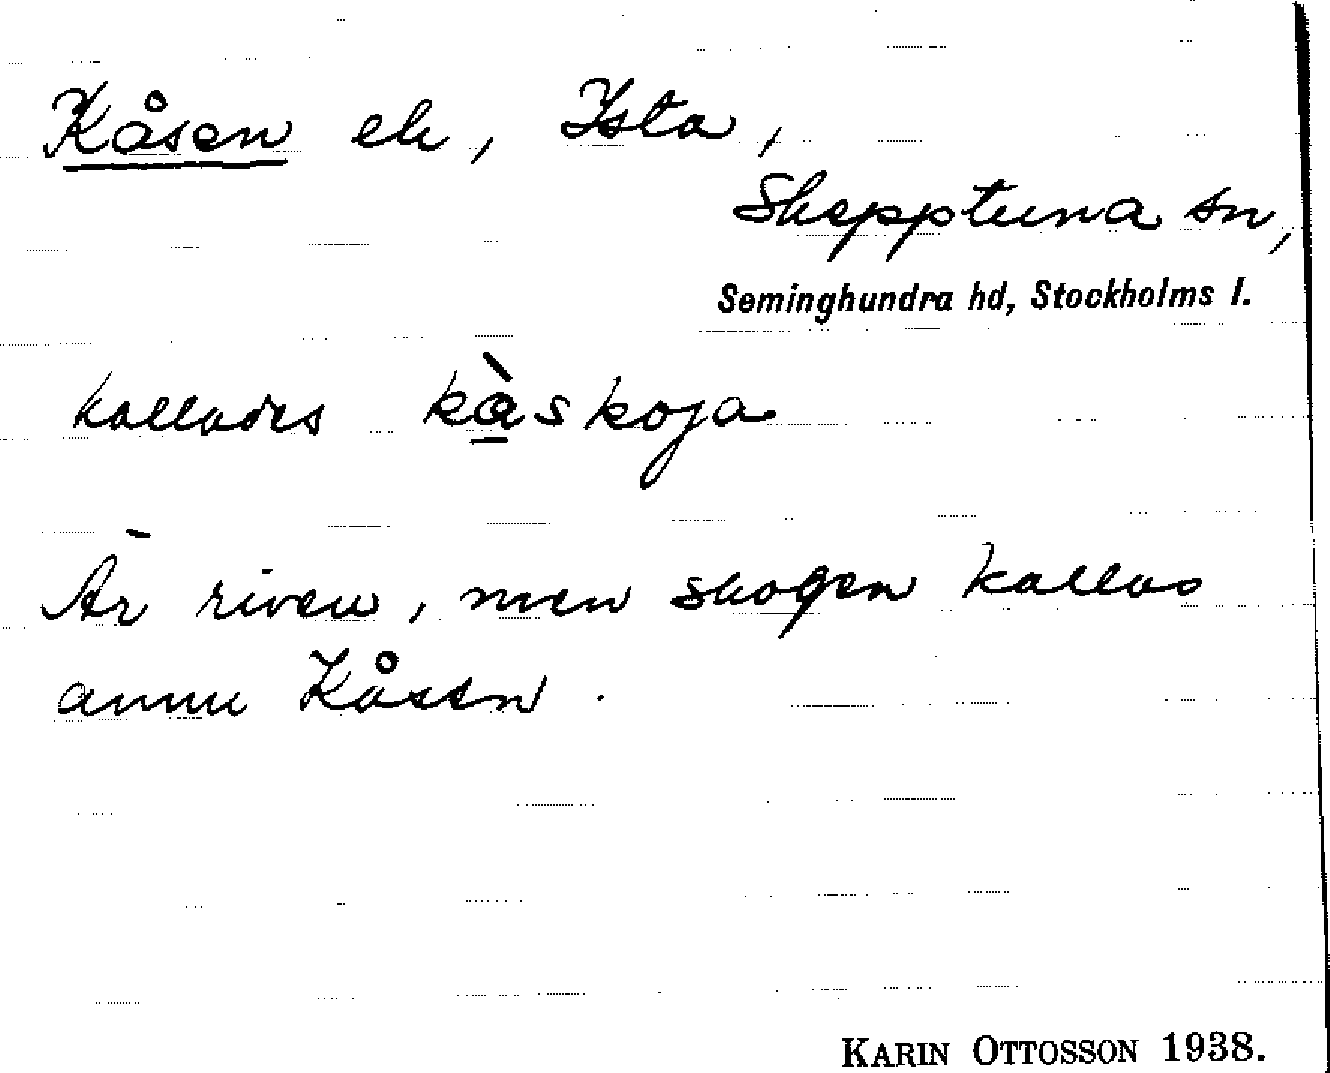 Kåsen elr, Ysta,
Skepptuna sn,
Seminghundra hd, Stockholms l.
kallades kàskoja
Är riven, men skogen kallas
ännu Kåsen.
KARIN OTTOSSON 1938.